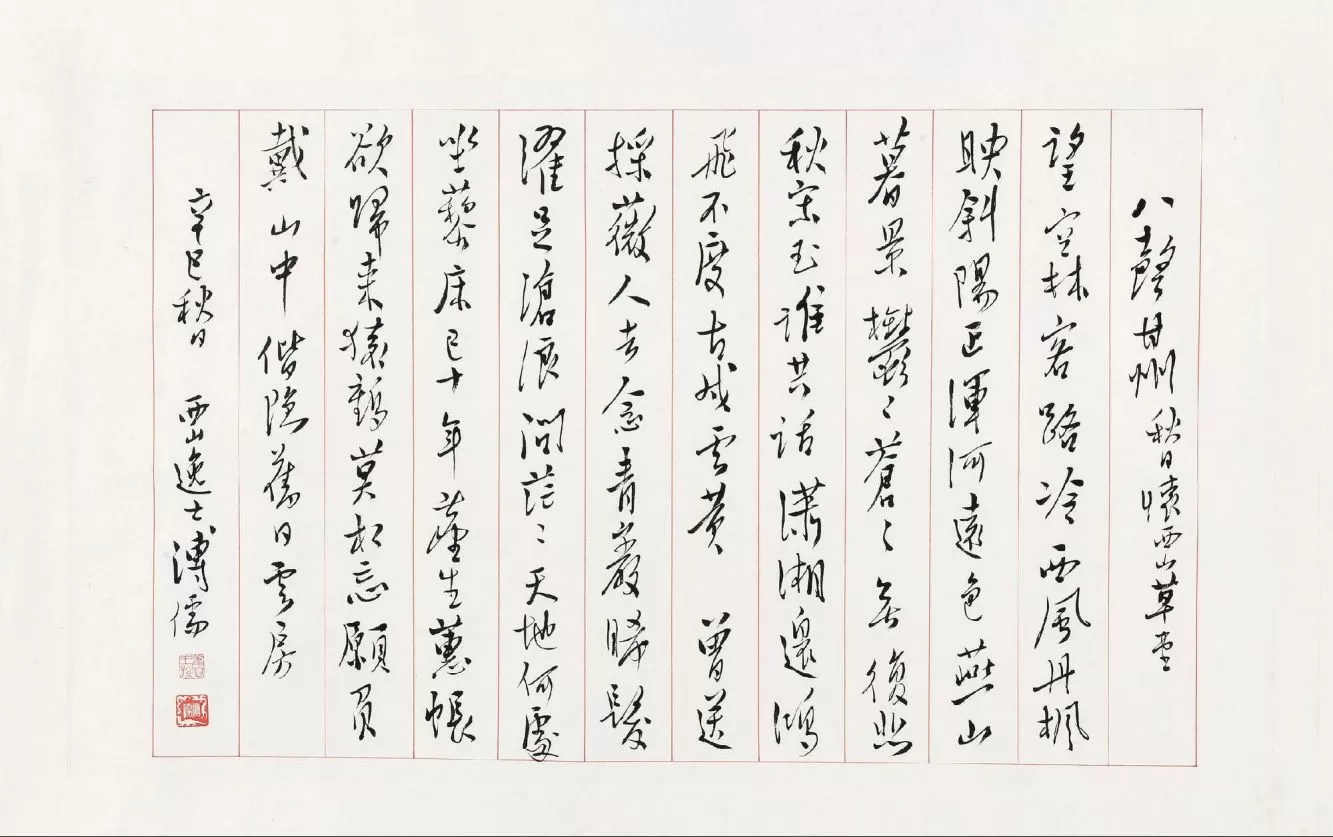 八聲甘州 秋日懷西山草堂
望空林客路冷西風丹楓
映斜陽正渾河遠色燕山
暮景鬱〻蒼〻無復悲
秋宋玉誰共話瀟湘邊鴻
飛不度古戍雲黃 曾送
採薇人去念青巖晞髮
濯足滄浪問茫〻天地何處
坐藜床已十年塵生蕙帳
欲歸來猿鶴莫相忘願負
戴山中偕隱舊日雲房
辛巳秋日 西山逸士溥儒